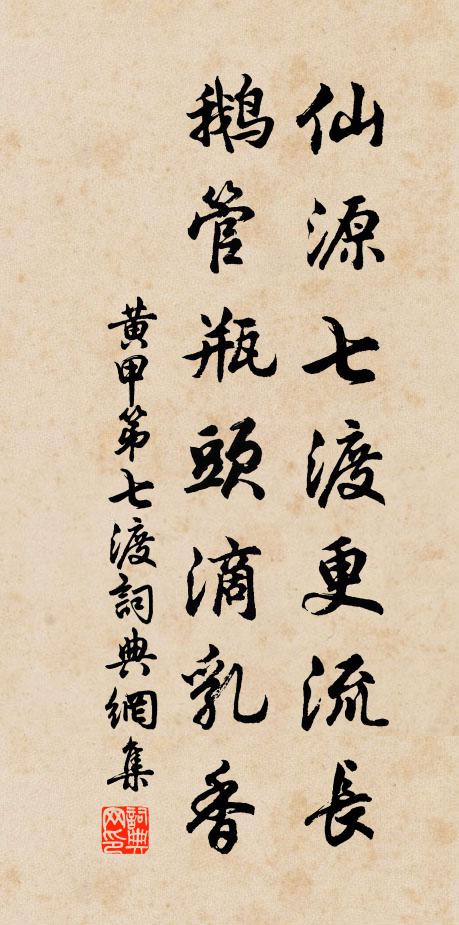 仙源七渡更流長
鵝管瓶頭滴乳香
黃甲第七渡詞典網集
詞典
網印